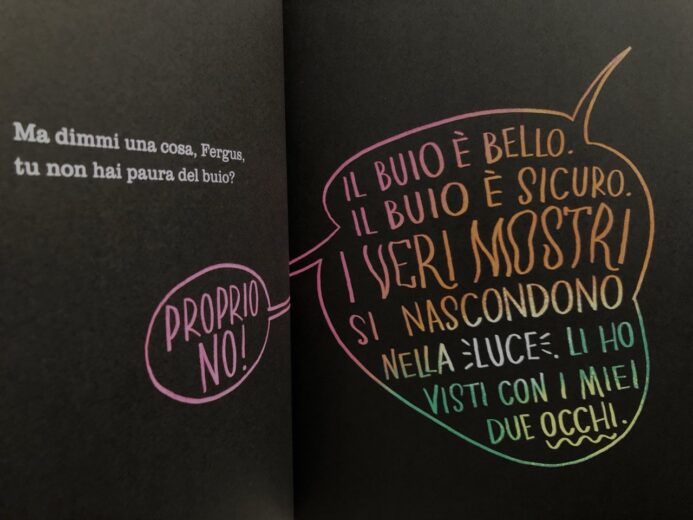 Ma dimmi una cosa, Fergus,
tu non hai paura del buio?
PROPRIO
NO!
IL BUIO È BELLO.
IL BUIO È SICURO.
I VERI MOSTRI
SI NASCONDONO
NELLA LUCE. LI HO
VISTI CON I MIEI
DUE OCCHI.